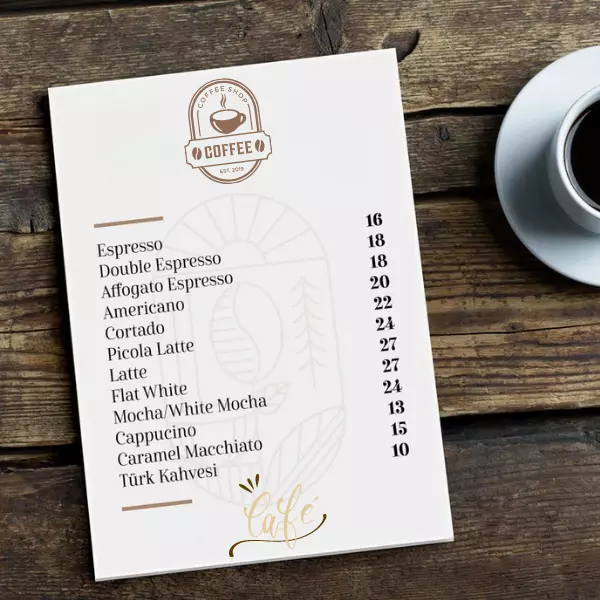 COFFEE SHOP
COFFEE
EST. 2019
Espresso 16
Double Espresso 18
Affogato Espresso 18
Americano 20
Cortado 22
Picola Latte 24
Latte 27
Flat White 27
Mocha/White Mocha 24
Cappucino 13
Caramel Macchiato 15
Türk Kahvesi 10
Café